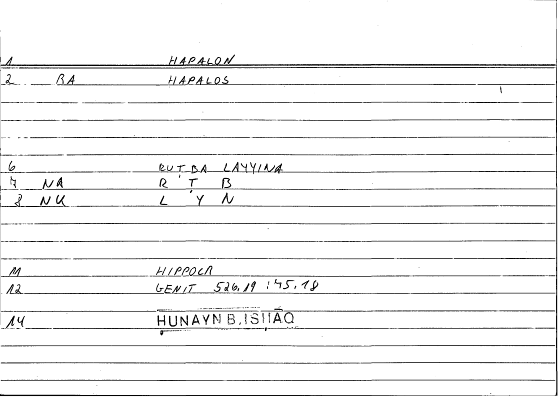 1 HAPALON
2 BA HAPALOS
6 RUTBA LAYYINA
7 NA R Ṭ B
8 NK L Y N
11 HIPPOCR
12 GENIT 526,19 : 45,18
14 HUNAYN B. ISHĀQ